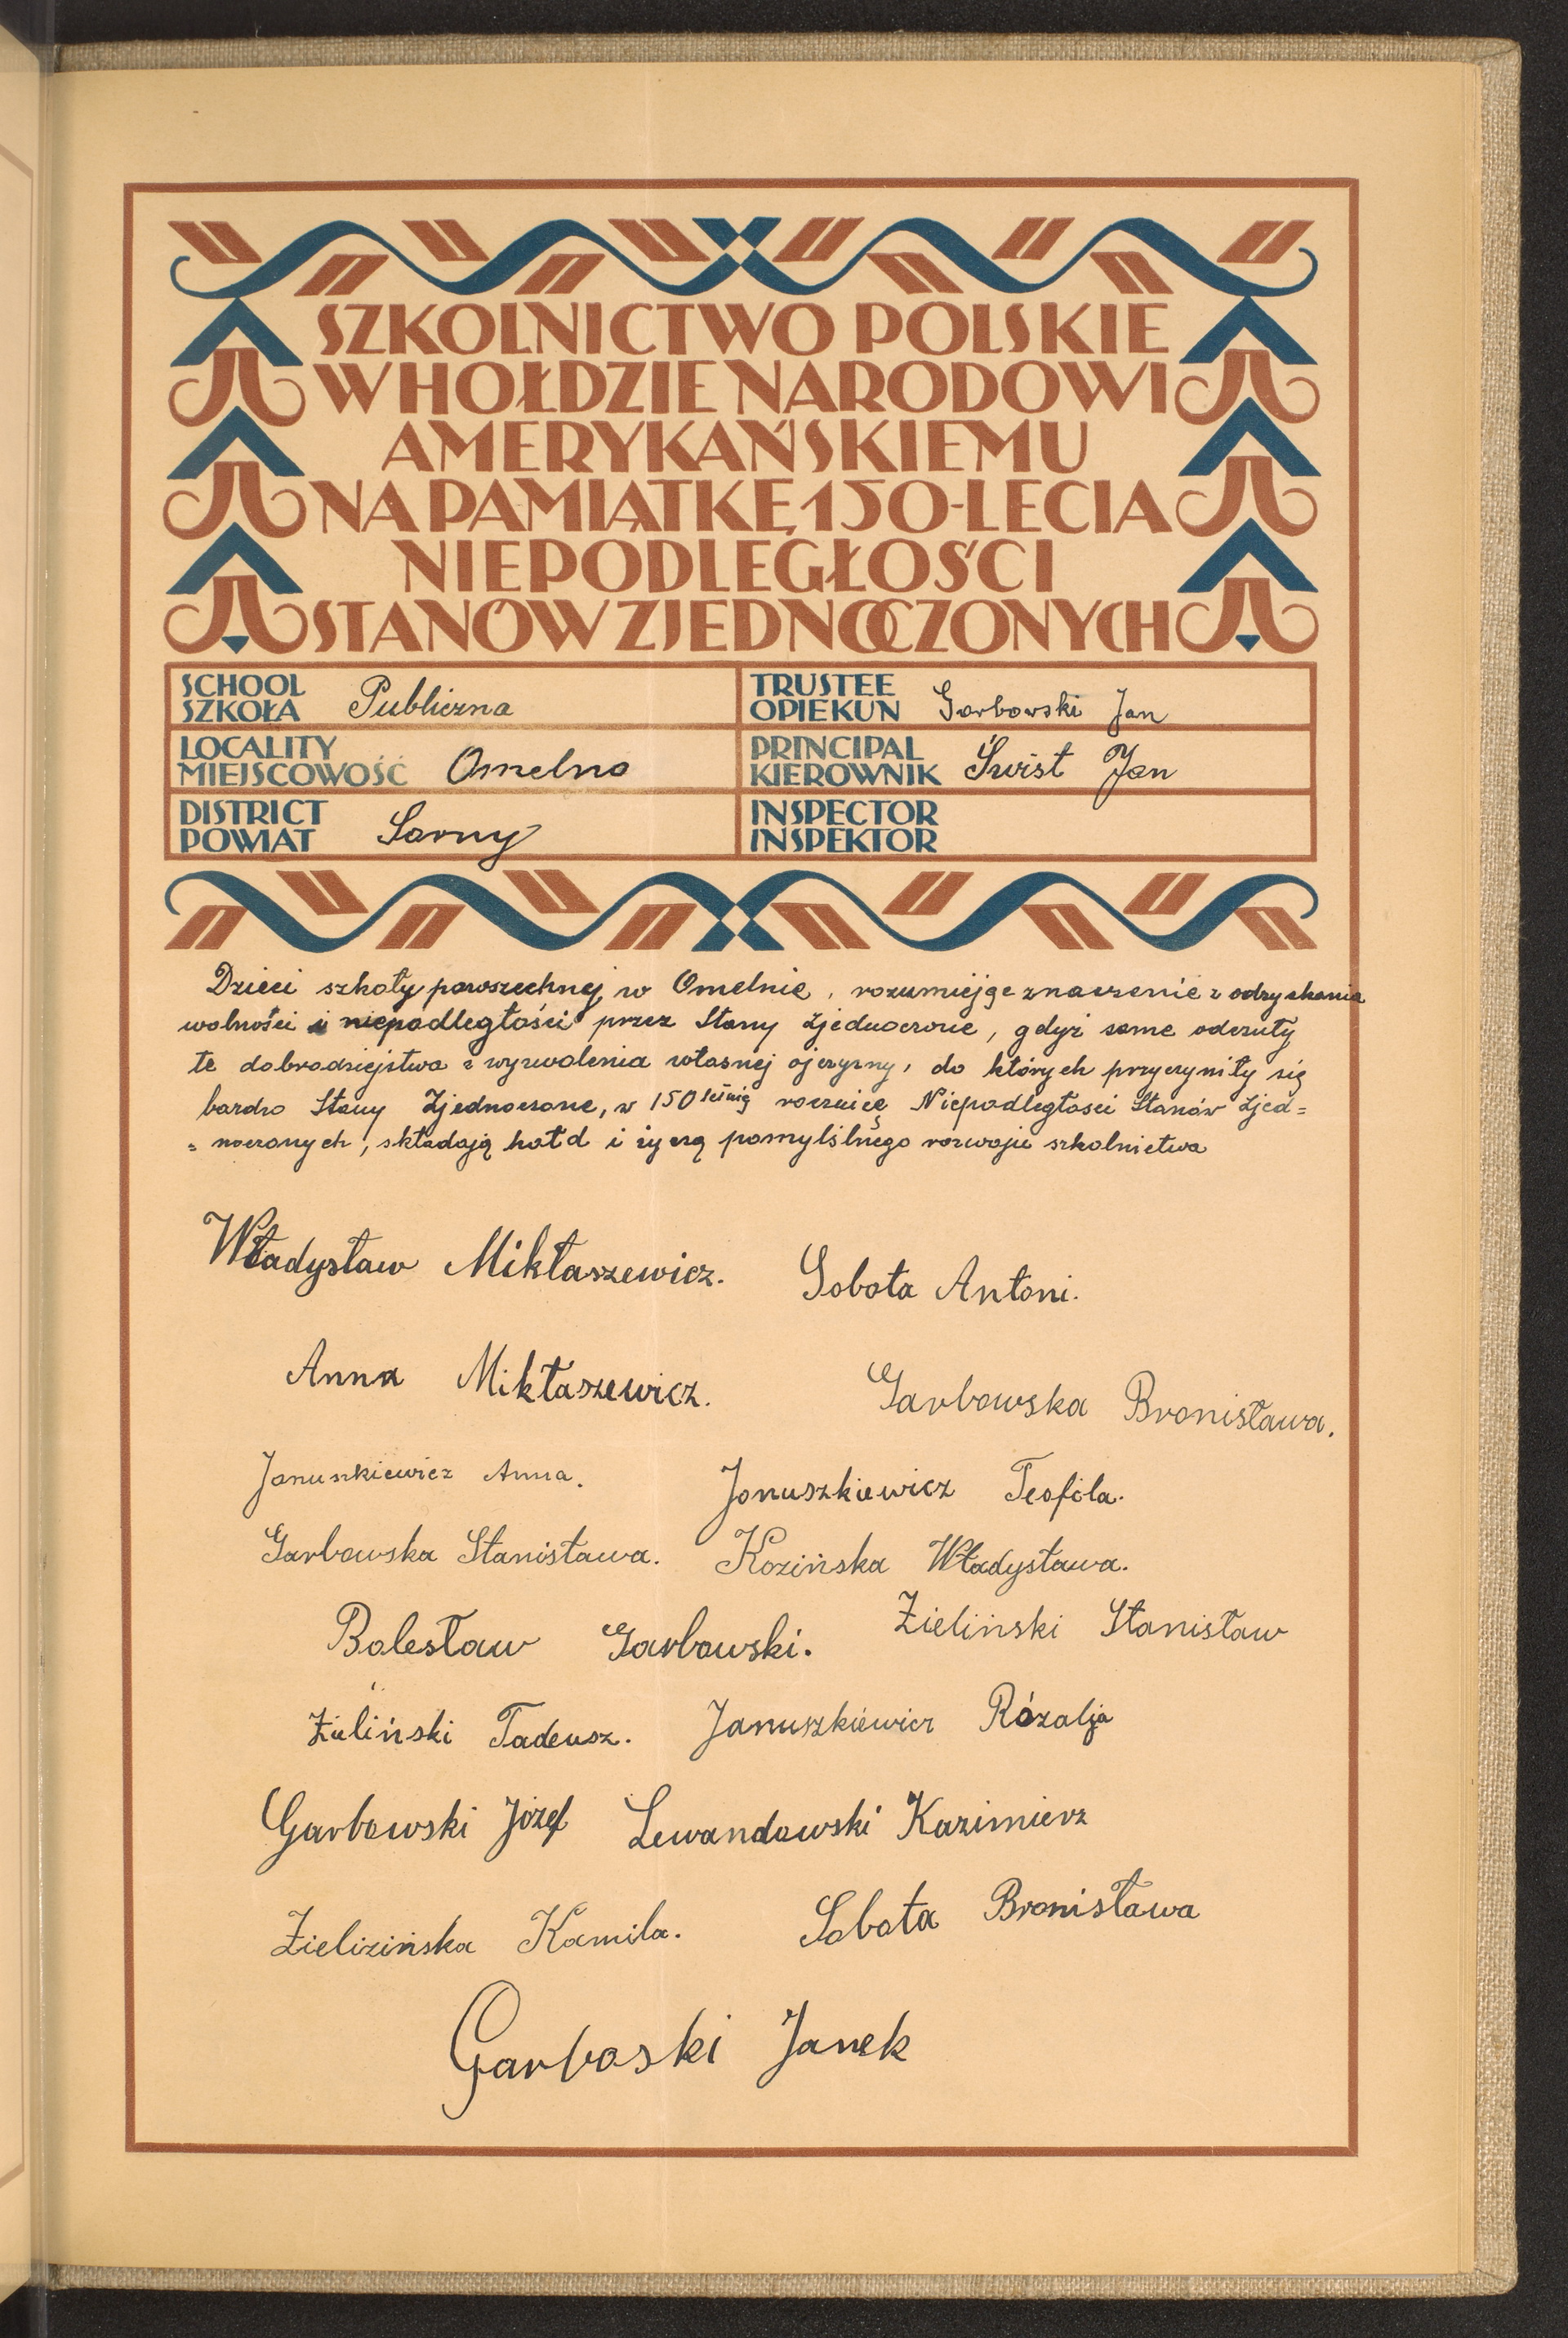 SZKOLNICTWO POLSKIE
W HOŁDZIE NARODOWI
AMERYKAŃSKIEMU
NA PAMIĄTKĘ 150-LECIA
NIEPODLEGŁOŚCI
STANÓW ZJEDNOCZONYCH
SCHOOL
SZKOŁA Publiczna
TRUSTEE
OPIEKUN Garbowski Jan
LOCALITY
MIEJSCOWOŚĆ Omelno
PRINCIPAL
KIEROWNIK Świst Jan
DISTRICT
POWIAT Sarny
INSPECTOR
INSPEKTOR
Dzieci szkoły powszechnej w Omelnie, rozumiejąc znaczenie z odzyskania
wolności i niepodległości przez Stany Zjednoczone, gdyż same odczuły
te dobrodziejstwa z wyzwolenia własnej ojczyzny, do których przyczyniły się
bardzo Stany Zjednoczone, w 150 letnią rocznicę Niepodległości Stanów Zjed=
= noczonych, składają hołd i życzą pomyślnego rozwoju szkolnictwa
Władysław Mikłaszewicz. Sobota Antoni.
Anna Mikłaszewicz. Garbowska Bronisława.
Januszkiewicz Anna. Januszkiewicz Teofila.
Garbowska Stanisława. Kozińska Władysława.
Bolesław Garbowski. Zieliński Stanisław
Zieliński Tadeusz. Januszkiewicz Rózalja
Garbowski Józef Lewandowski Kazimierz
Zielizińska Kamila. Sobota Bronisława
Garboski Janek